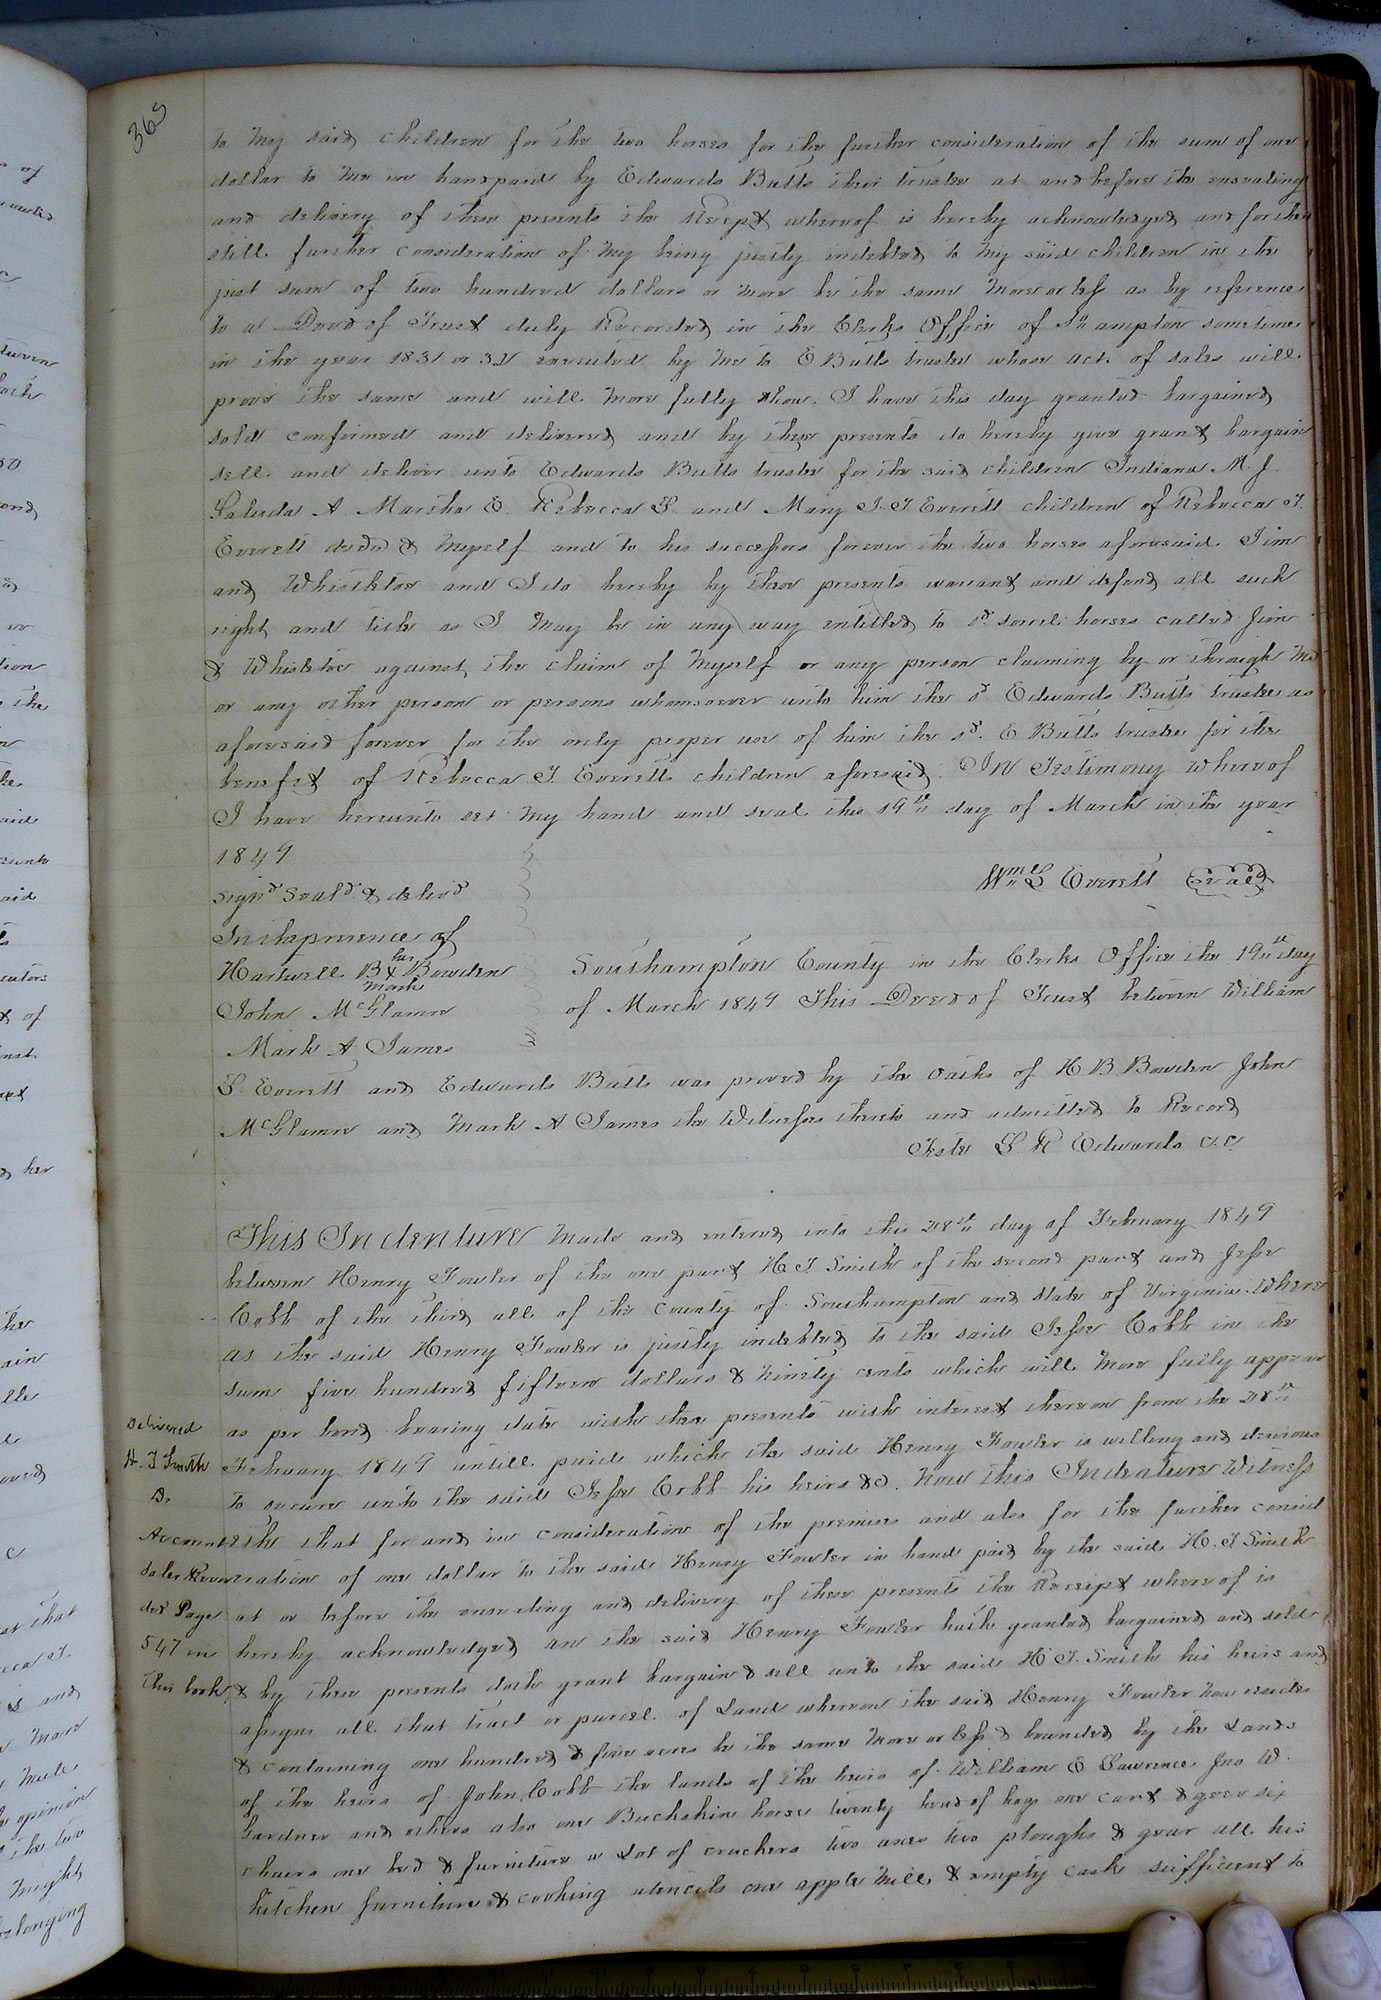 365
to my said children for the two horses for the further consideration of the sum of one
dollar to me in hand paid by Edwards Butts their trustee at and before the ensealing
and delivery of these presents the Receipt whereof is hereby acknowledged and for the
still further consideration of my being justly indebted to my said children in the
just sum of two hundred dollars or more be the same more or less as by reference
to a Deed of Trust duly Recorded in the Clerks Office of S'hampton sometime
in the year 1831 or 32 executed by me to E Butts trustee whose act. of sales will
prove the same and will more fully show. I have this day granted bargained
sold confirmed and delivered and by these presents do hereby give grant bargain
sell and deliver unto Edwards Butts trustee for the said children Indiana M. J.
Saluda A Martha E. Rebecca S. and Mary J. T Everett children of Rebecca T.
Everett decd & myself and to his successors forever the two horses aforesaid Jim
and Whistletoe and I do hereby by these presents warrant and defend all such
right and title as I may be in any way entitled to sd. sorrel horses called Jim
& Whistletoe against the claim of myself or any person claiming by or through me
or any other person or persons whomsoever unto him the sd. Edwards Butts trustee as
aforesaid forever for the only proper use of him the sd. E Butts trustee for the
benefit of Rebecca T. Everett children aforesaid. In Testimony whereof
I have hereunto set my hand and seal this 19th day of March in the year
1849
Wm S Everett Seal
Signd Seald & delivd
In the presence of
his
Hartwell B X Bowden
mark
John McGlamre
Mark A James
Southampton County in the Clerks Office the 19th day
of March 1849 This Deed of Trust between William
S. Everett and Edwards Butts was proved by the oaths of H. B. Bowden John
McGlamre and Mark A James the Witnesses thereto and admitted to Record
Teste L R Edwards C.C.
This Indenture made and entered into this 28th day of February 1849
between Henry Fowler of the one part H. T. Smith of the second part and Jesse
Cobb of the third all of the County of Southampton and State of Virginia. Where
as the said Henry Fowler is justly indebted to the said Jesse Cobb in the
sum five hundred fifteen dollars & ninety cents which will more fully appear
as per bond bearing date with these presents with interest thereon from the 28th
February 1849 untill paid which the said Henry Fowler is willing and desirous
to secure unto the said Jesse Cobb his heirs &c. Now this Indenture Witness
eth that for and in consideration of the premises and also for the further consid
eration of one dollar to the said Henry Fowler in hand paid by the said H. T Smith
at or before the ensealing and delivery of these presents the Receipt whereof is
hereby acknowledged an the said Henry Fowler hath granted bargained and sold
& by these presents doth grant bargain & sell unto the said H T. Smith his heirs and
assigns all that tract or parcel of Land whereon the said Henry Fowler now resides
& containing one hundred & five acres be the same more or less & bounded by the Lands
of the heirs of John Cobb the lands of the heirs of William E Lawrence Jno W.
Gardner and others also one Buckskin horse twenty head of hogs one cart & geer six
chairs one bed & furniture a Lot of crockers two axes two ploughs & gear all his
kitchen furniture & cooking utencils one apple mill & empty cask sufficient to
Delivered
H. T Smith
Dr
Account
Sales Recor
ded Page
547 in
this book